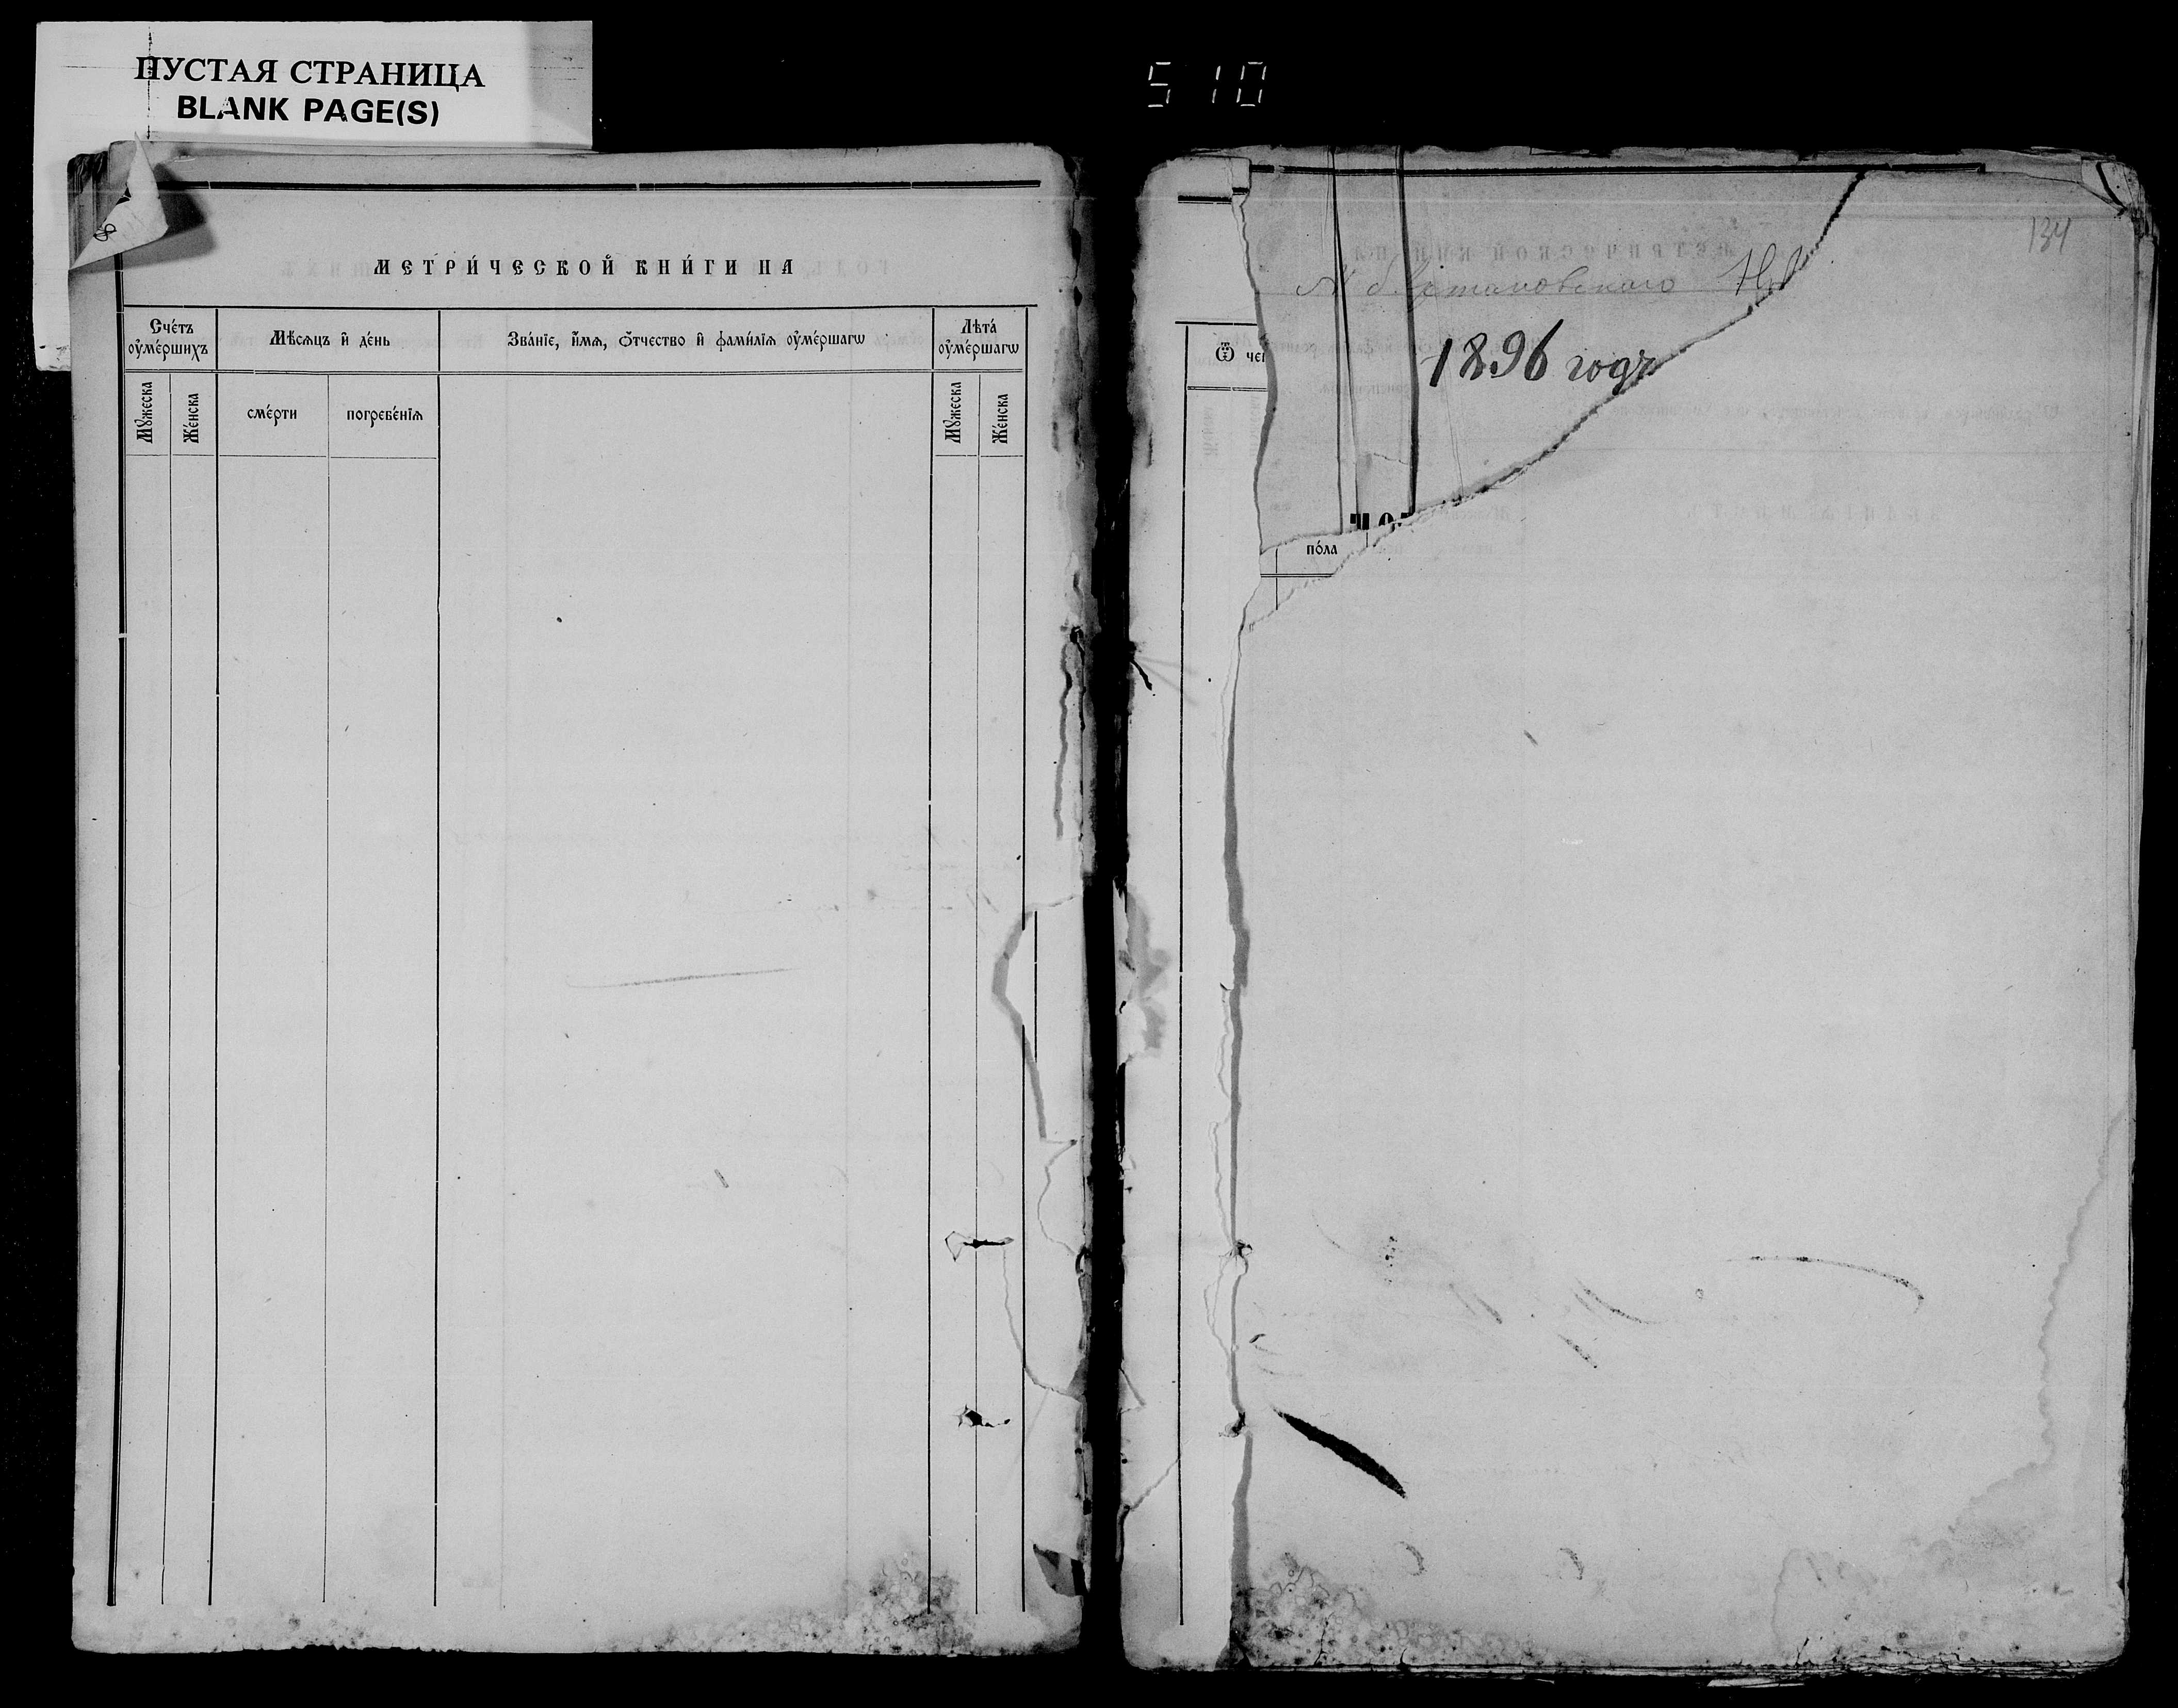 ПУСТАЯ СТРАНИЦА
BLANK PAGE(S)
510
МЕТРИ́ЧЕСКОЙ КНИ́ГИ НА
Сче́тъ оу҆ме́ршихъ
Мѣ́сяцъ и҆ де́нь
Зва́нїе, и҆́мѧ, ѻ҆́тчество и҆ фами́лїѧ оу҆ме́ршагѡ
Лѣта̀ оу҆ме́ршагѡ
Мꙋ́жеска
Же́нска
сме́рти
погребе́нїѧ
Мꙋ́жеска
Же́нска
134
1896 годъ
Ѿ че
по́ла